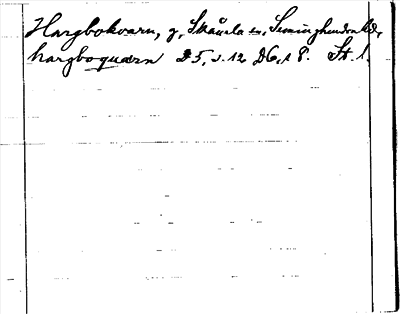 Hargbokvarn, g, Skånela sn, Seminghundra hd,
hargboquarn D5, s. 12 D6, s 8. St. l.